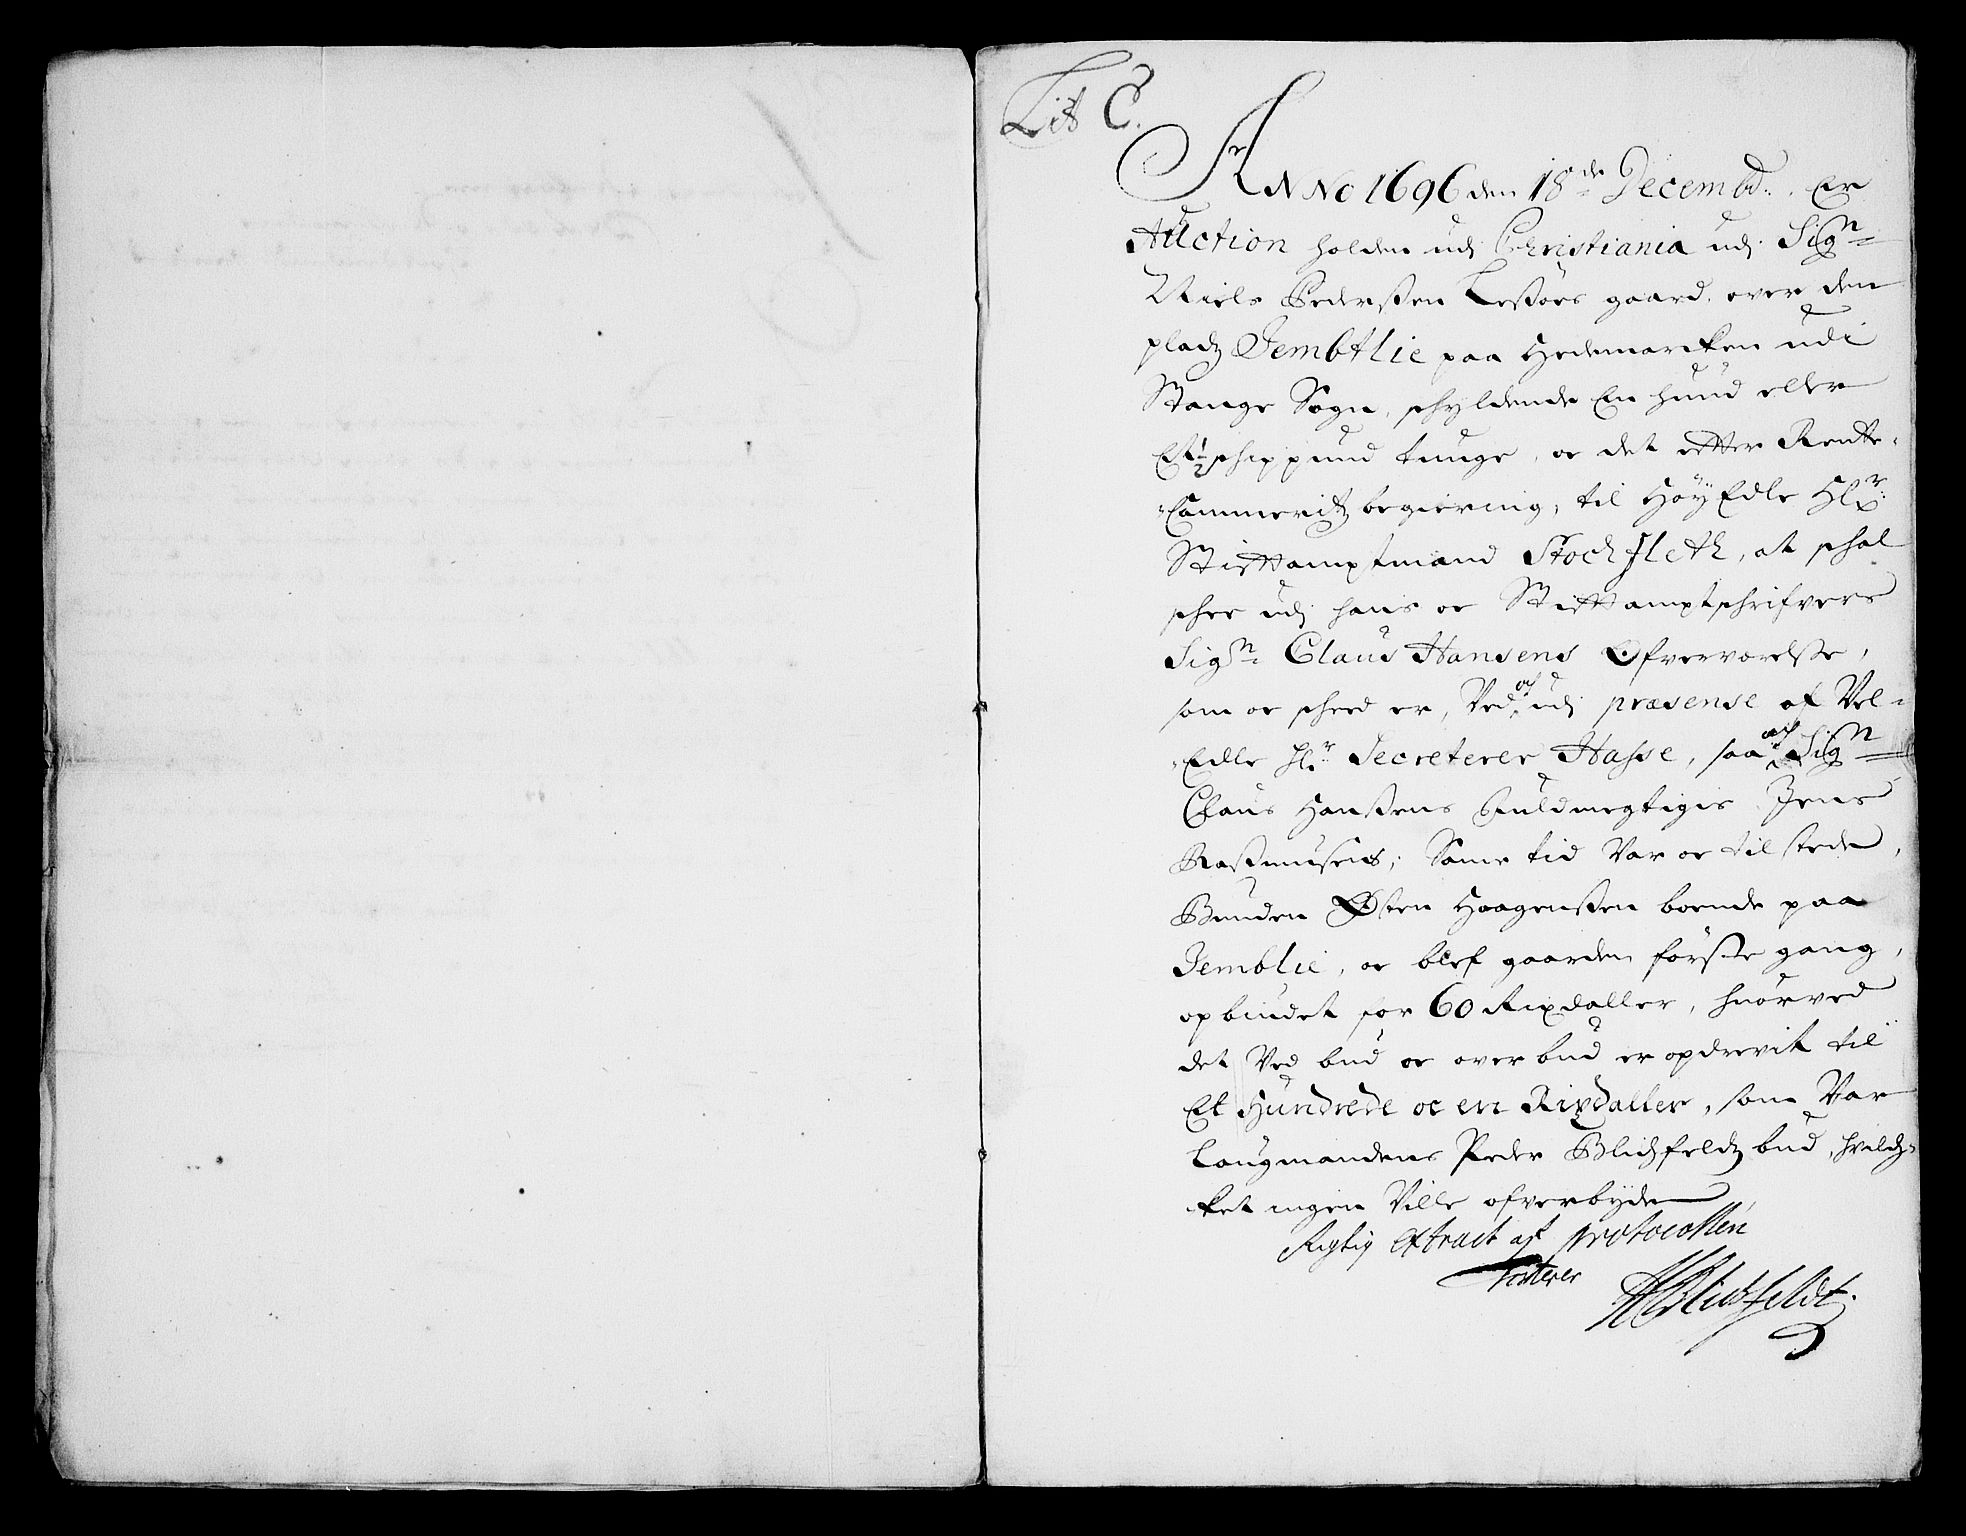 Lit C.
ANNo 1696 den 18de Decembr. Er
Auction holden udj Christiania udj Sign
Niels Pederssen Lessøes gaard, over den
pladz Jembtlie paa Hedemarcken udi
Stange Sogn, schyldende En hund eller
Et ½ schippund tunge, oc det effter Rente-
-Cammeritz begiering, til HøyEdle Hl r
Stifftamptmand Stockfleth, at schal
schee udj hans oc Stifftamptschrifvers
Sign Claus Hansens Ofverværelsse,
som oc scheed er, Ved och udj præsense af Vel-
-Edle Hl r Secreterer Hasse, saa och Sign
Claus Hanssens Fuldmegtigis Jens
Rassmusens, Same tid Var oc tilstede,
Bunden Østen Haagenssen boende paa
Jemblie, oc blef gaarden første gang,
opbiudet for 60 Rixdaller, huorved
det Ved bud oc overbud er opdrevit til
Et Hundrede oc en Rixdaller, som Var
Laugmandens Peder Blichfeldtz bud, hvilch-
-ket ingen Ville ofverbyde
Rigtig extract af protocollen
Testerer
HBlichfeldt.